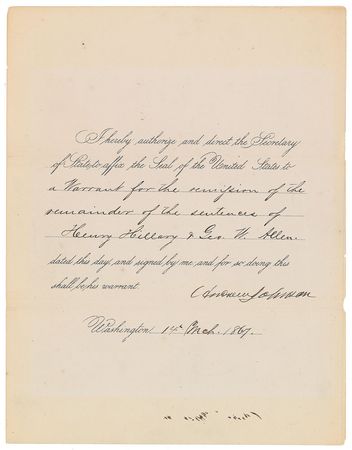 I hereby authorize and direct the Secretary
of State to affix the Seal of the United States to
a Warrant for the remission of the
remainder of the sentences of
Henry Hillary & Geo. W. Allen.
dated this day, and signed by me, and for so doing this
shall be his warrant.
Andrew Johnson
Washington, 14th Mch. 1867.